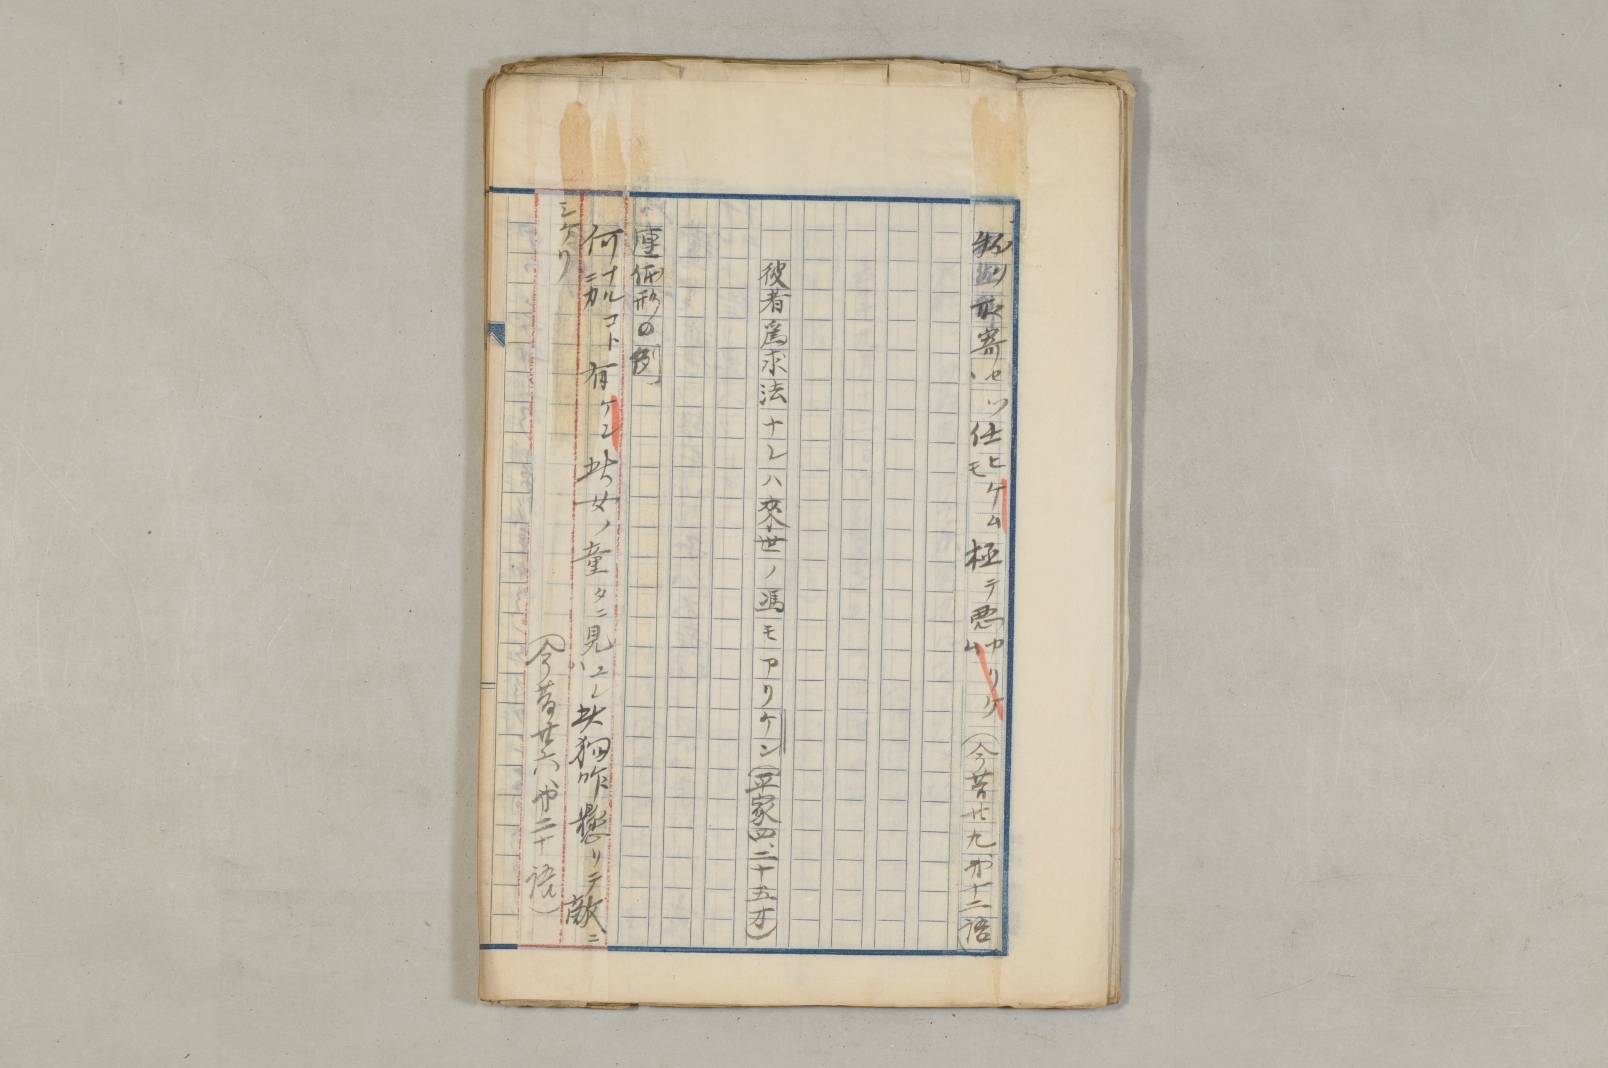 取寄セツ仕ヒケム極テ悪カリケム(今昔廿九第十二語)
彼者爲求法ナレハ來世ノ馮モアリケン(平家四、二十五オ)
連体形の例
何ナルコトカ有ケン此女ノ童タニ見ユレハ此狗咋懸リテ敵ニ
シケリ
(今昔廿六第二十語)